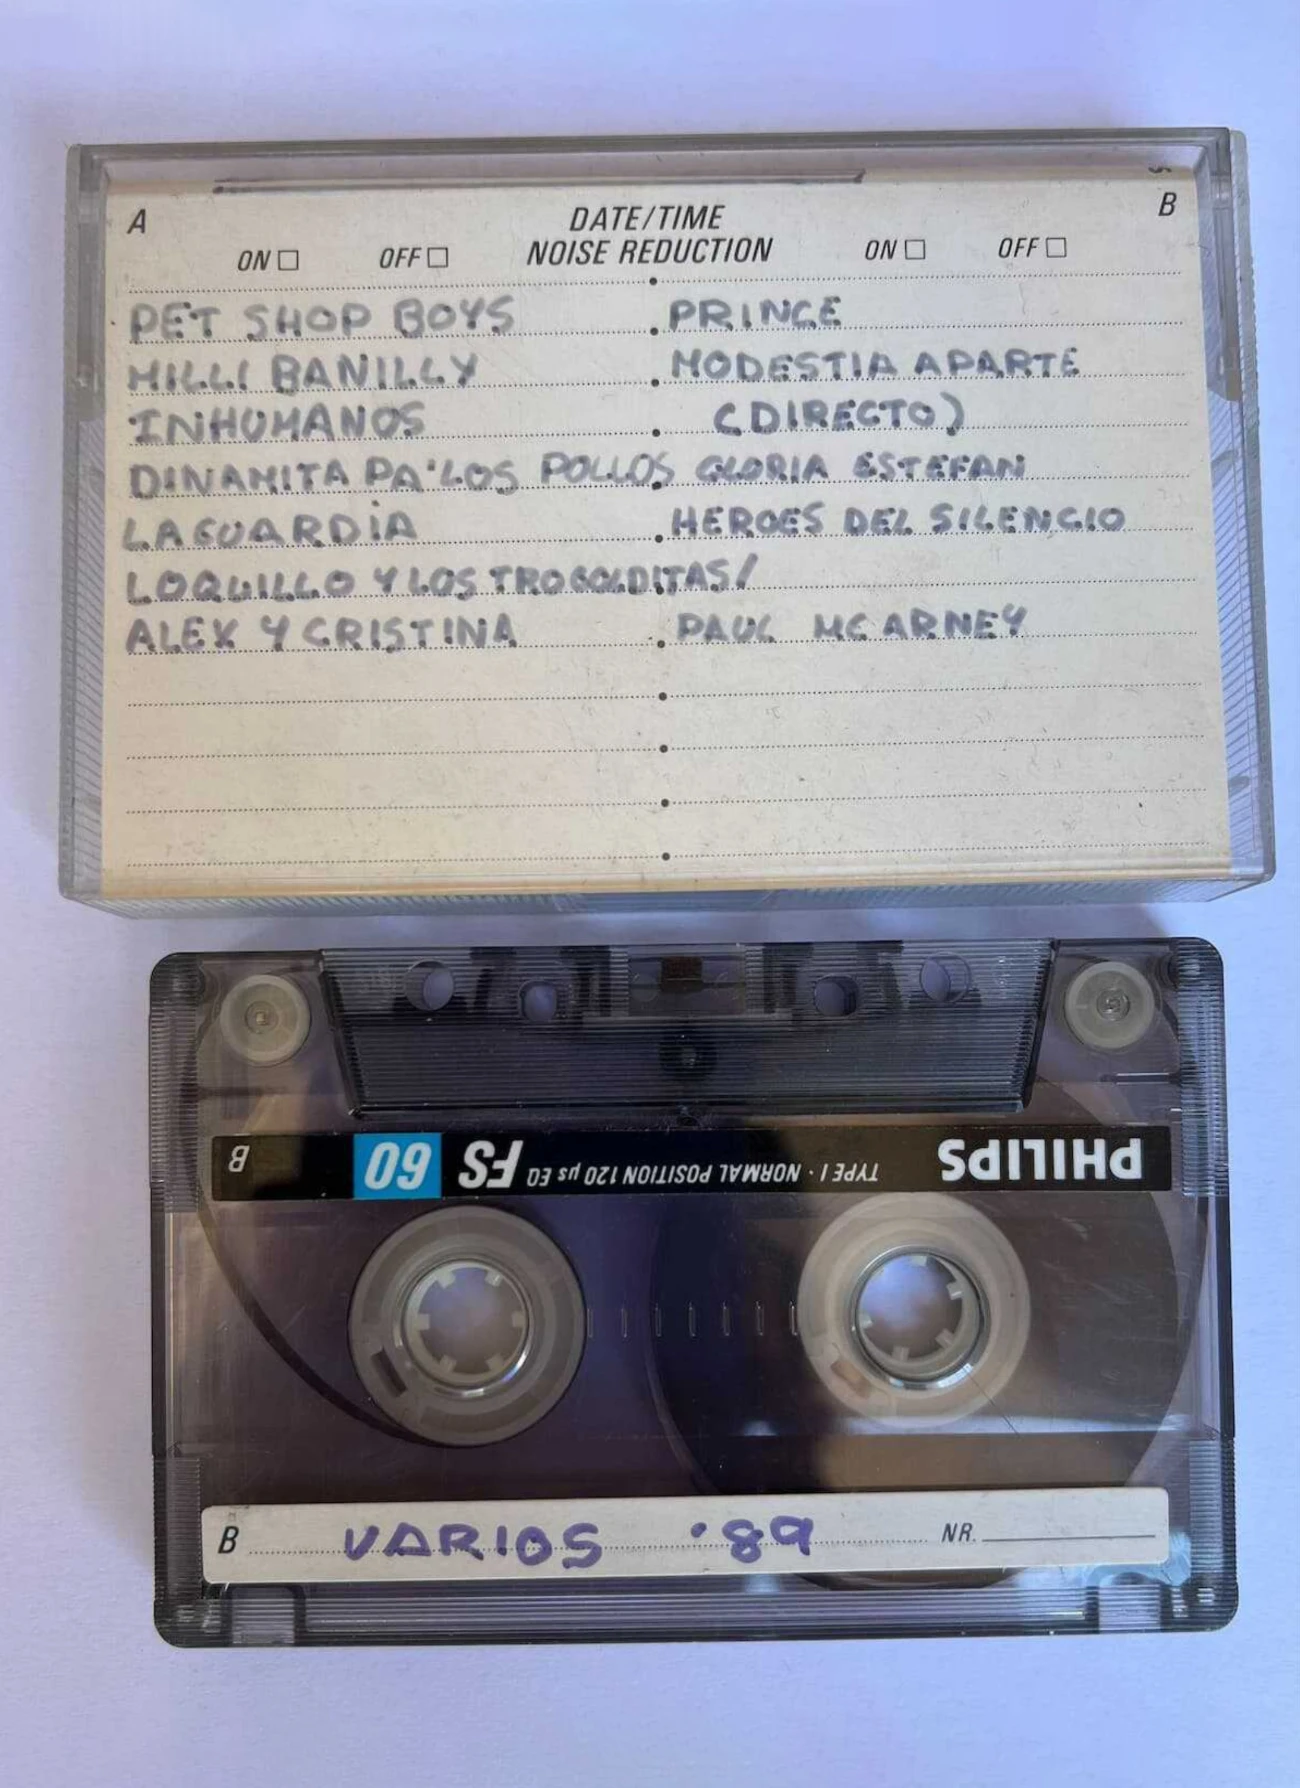 A DATE/TIME B
ON OFF NOISE REDUCTION ON OFF
PET SHOP BOYS PRINCE
MILLI BANILLY MODESTIA APARTE
INHUMANOS (DIRECTO)
DINAMITA PA'LOS POLLOS GLORIA ESTEFAN
LAGUARDIA HEROES DEL SILENCIO
LOQUILLO Y LOS TROGOLDITAS/
ALEX Y CRISTINA PAUL MC ARNEY
PHILIPS TYPE I · NORMAL POSITION 120 µs EQ FS 60 B
B VARIOS '89 NR.